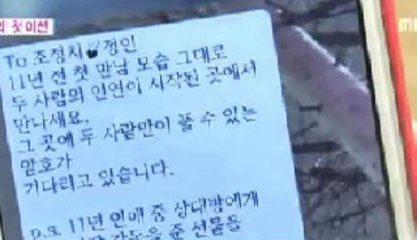 첫 미션
MB
To 조정치♥정인
11년 전 첫 만남 모습 그대로
두 사람의 인연이 시작된 곳에서
만나세요.
그 곳에 두 사람만이 풀 수 있는
암호가
기다리고 있습니다.
P.S. 11년 연애 중 상대방에게
준 선물들